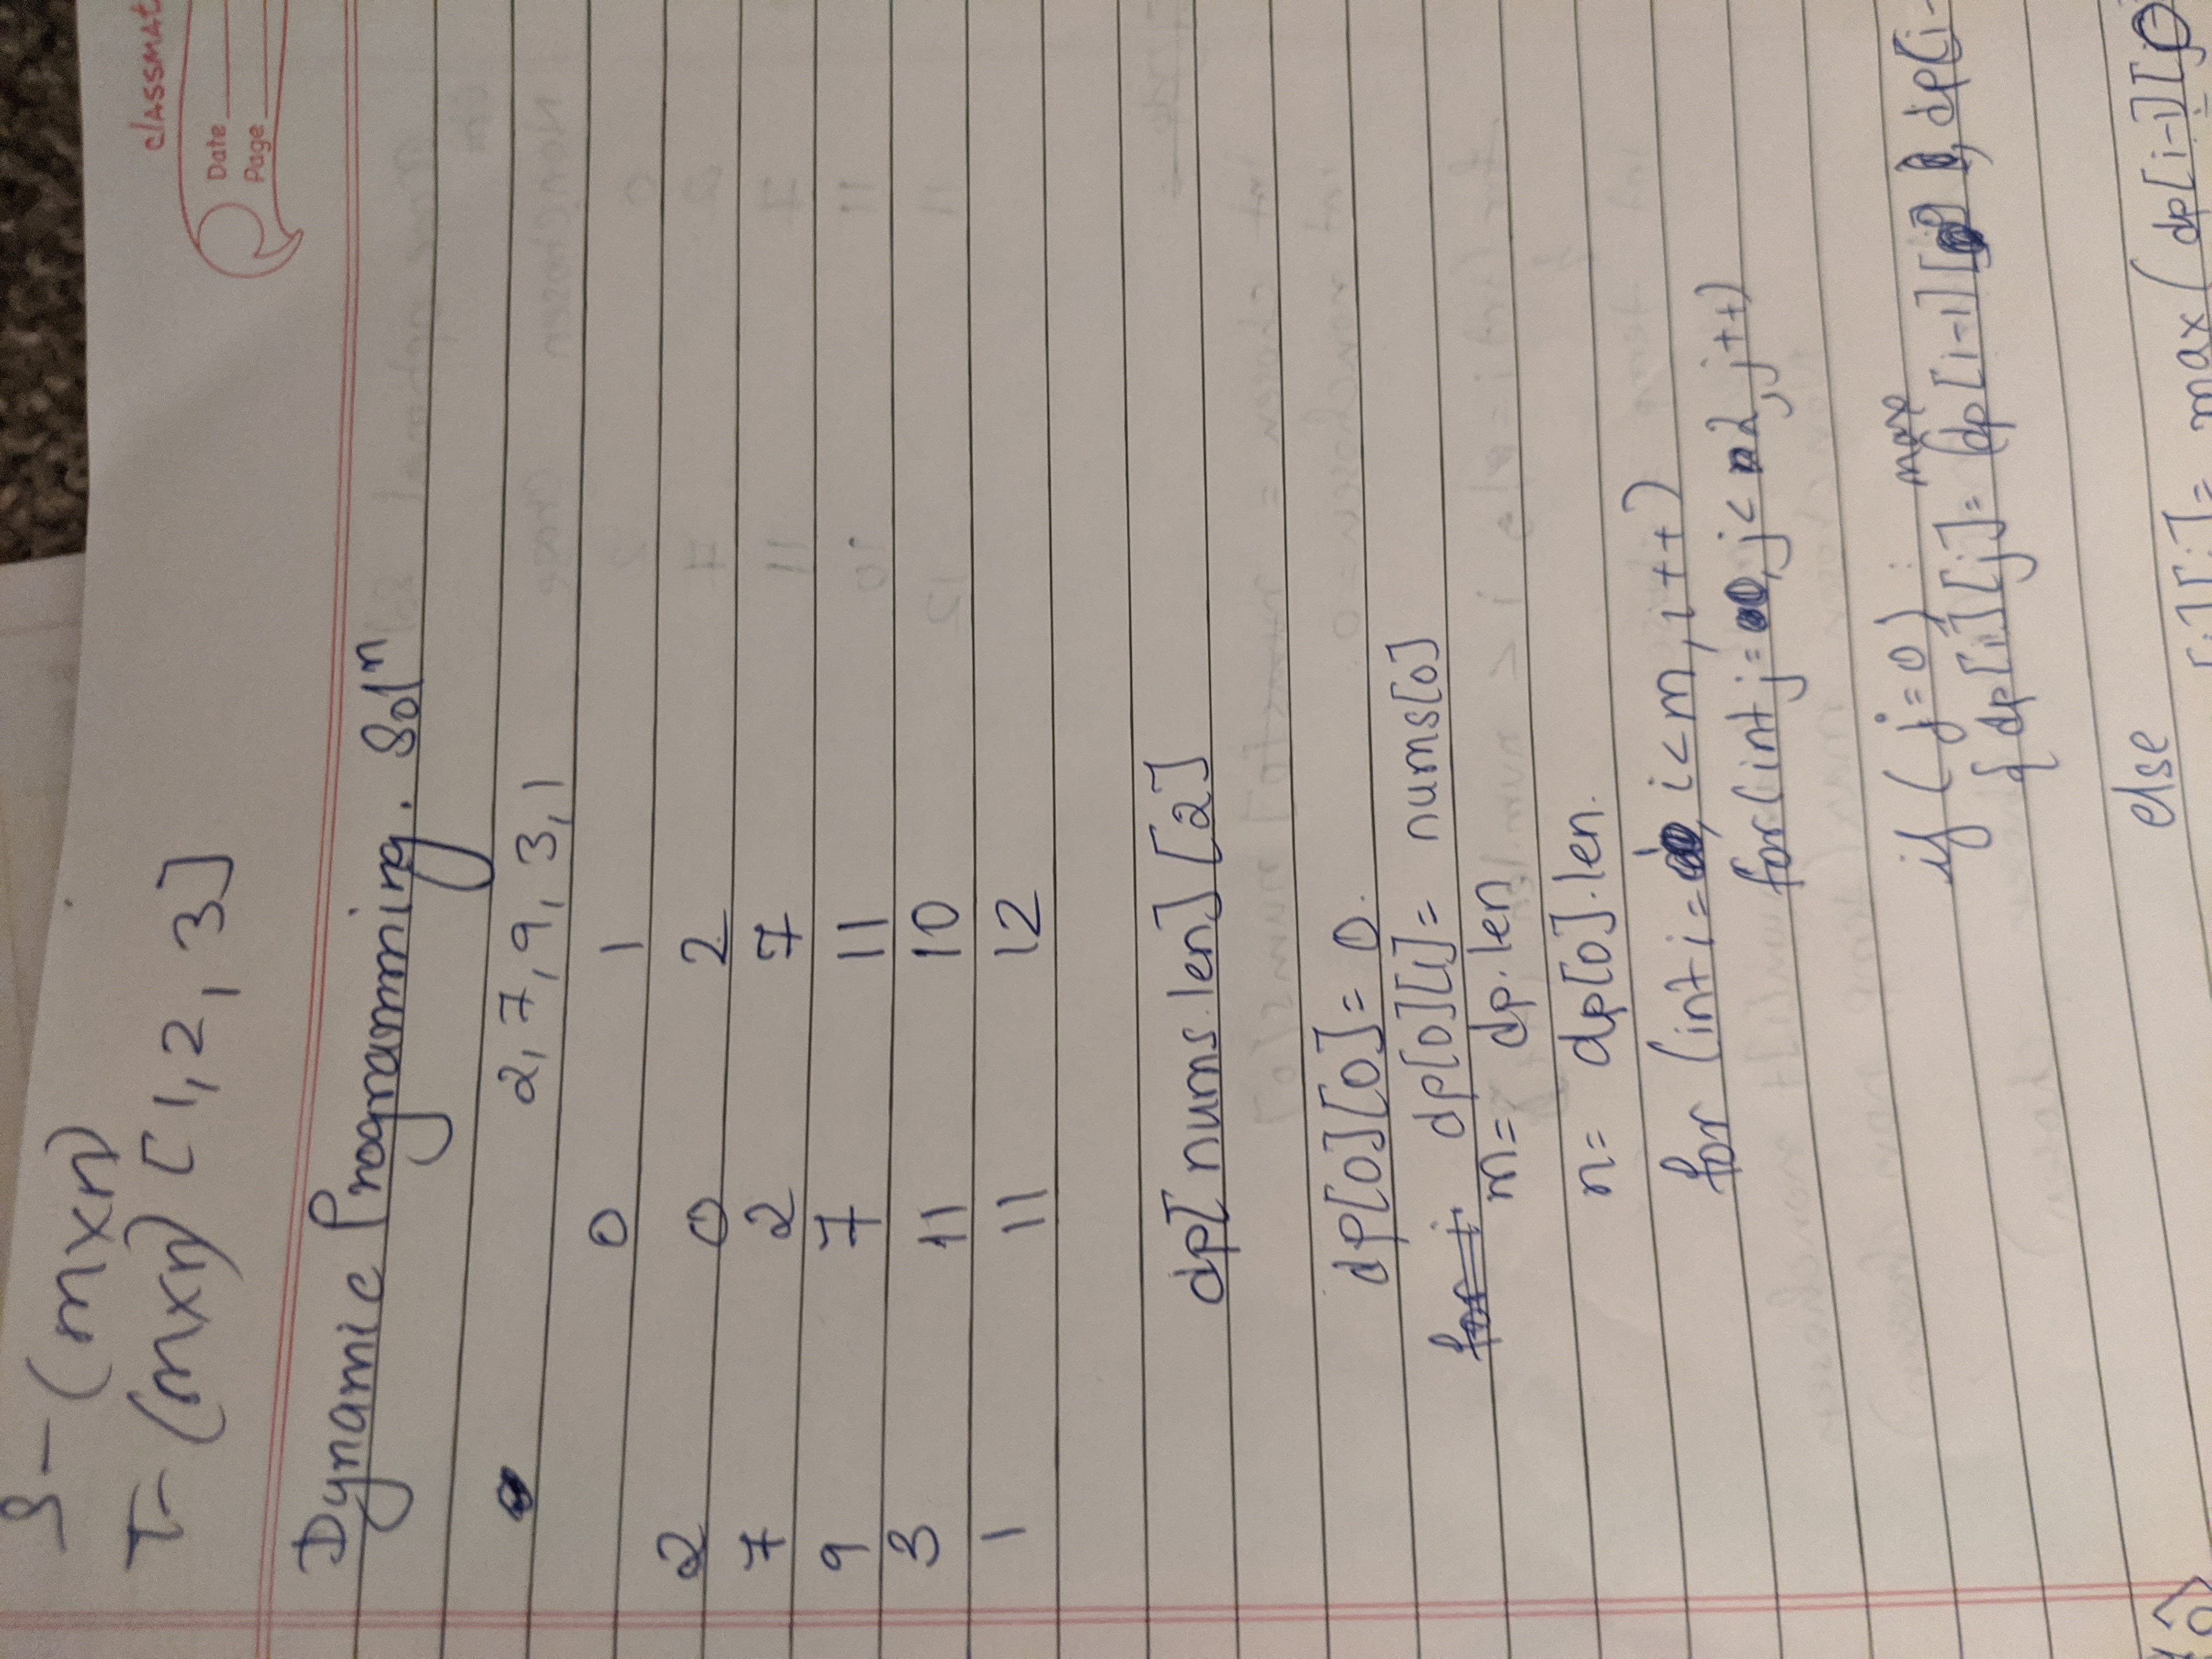 S - (m×n)
T - (m×n) [1, 2, 3]
classmat
Date
Page
Dynamic Programming. Solⁿ
2, 7, 9, 3, 1
0 1
2 0 2
7 2 7
9 7 11
3 11 10
1 11 12
dp[nums.len][2]
dp[0][0] = 0.
for i dp[0][1] = nums[0]
m = dp.len
n = dp[0].len.
for (int i = , i<m, i++)
for (int j = 0, j< 2, j++)
if (j=0) : max
{ dp[i][j] = (dp[i-1][ ] , dp[i-
else
[i][j] = max (dp[i-1][0